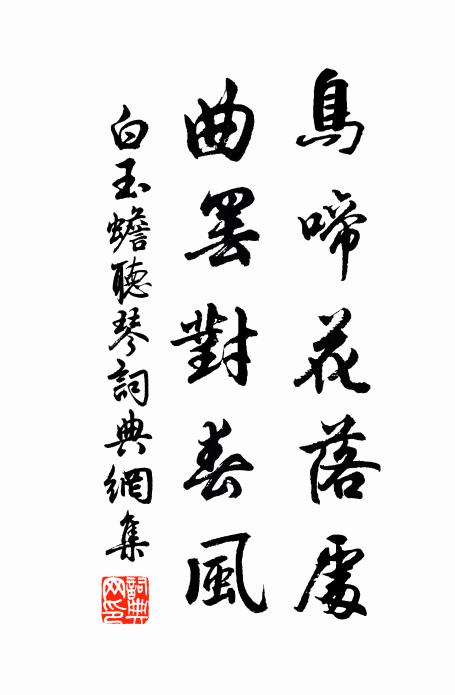 鳥啼花落處
曲罢對春風
白玉蟾聽琴詞典網集
詞典網印